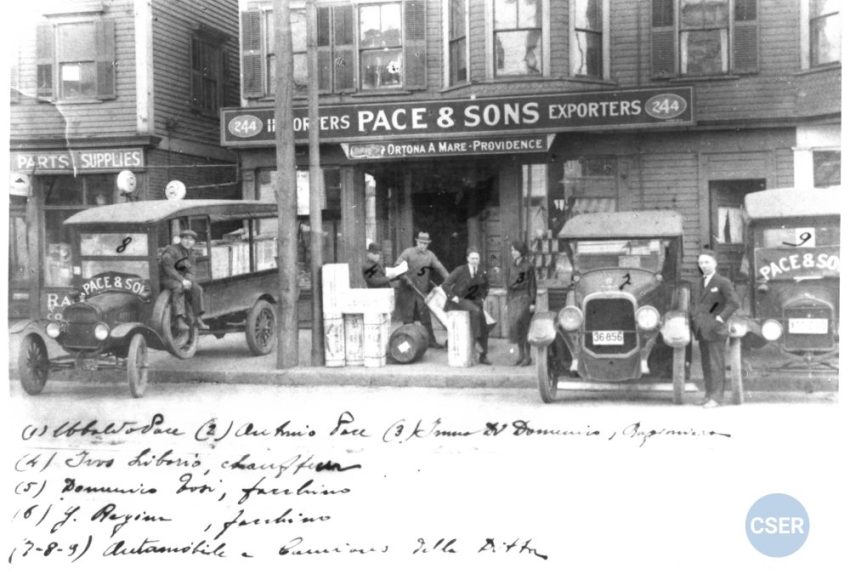 244 IMPORTERS PACE & SONS EXPORTERS 244
ORTONA A MARE - PROVIDENCE
PARTS, SUPPLIES
8
9
PACE & SONS
PACE & SONS
6
4
5
2
3
7
1
RA
36·856
(1) Ubaldo Pace (2) Antonio Pace (3) Di Domenico,
(4) Ivo Liborio, chauffeur
(5) Domenico Tosi, facchino
(6) G. Regina, facchino
(7-8-9) Automobile e Camions della Ditta
CSER